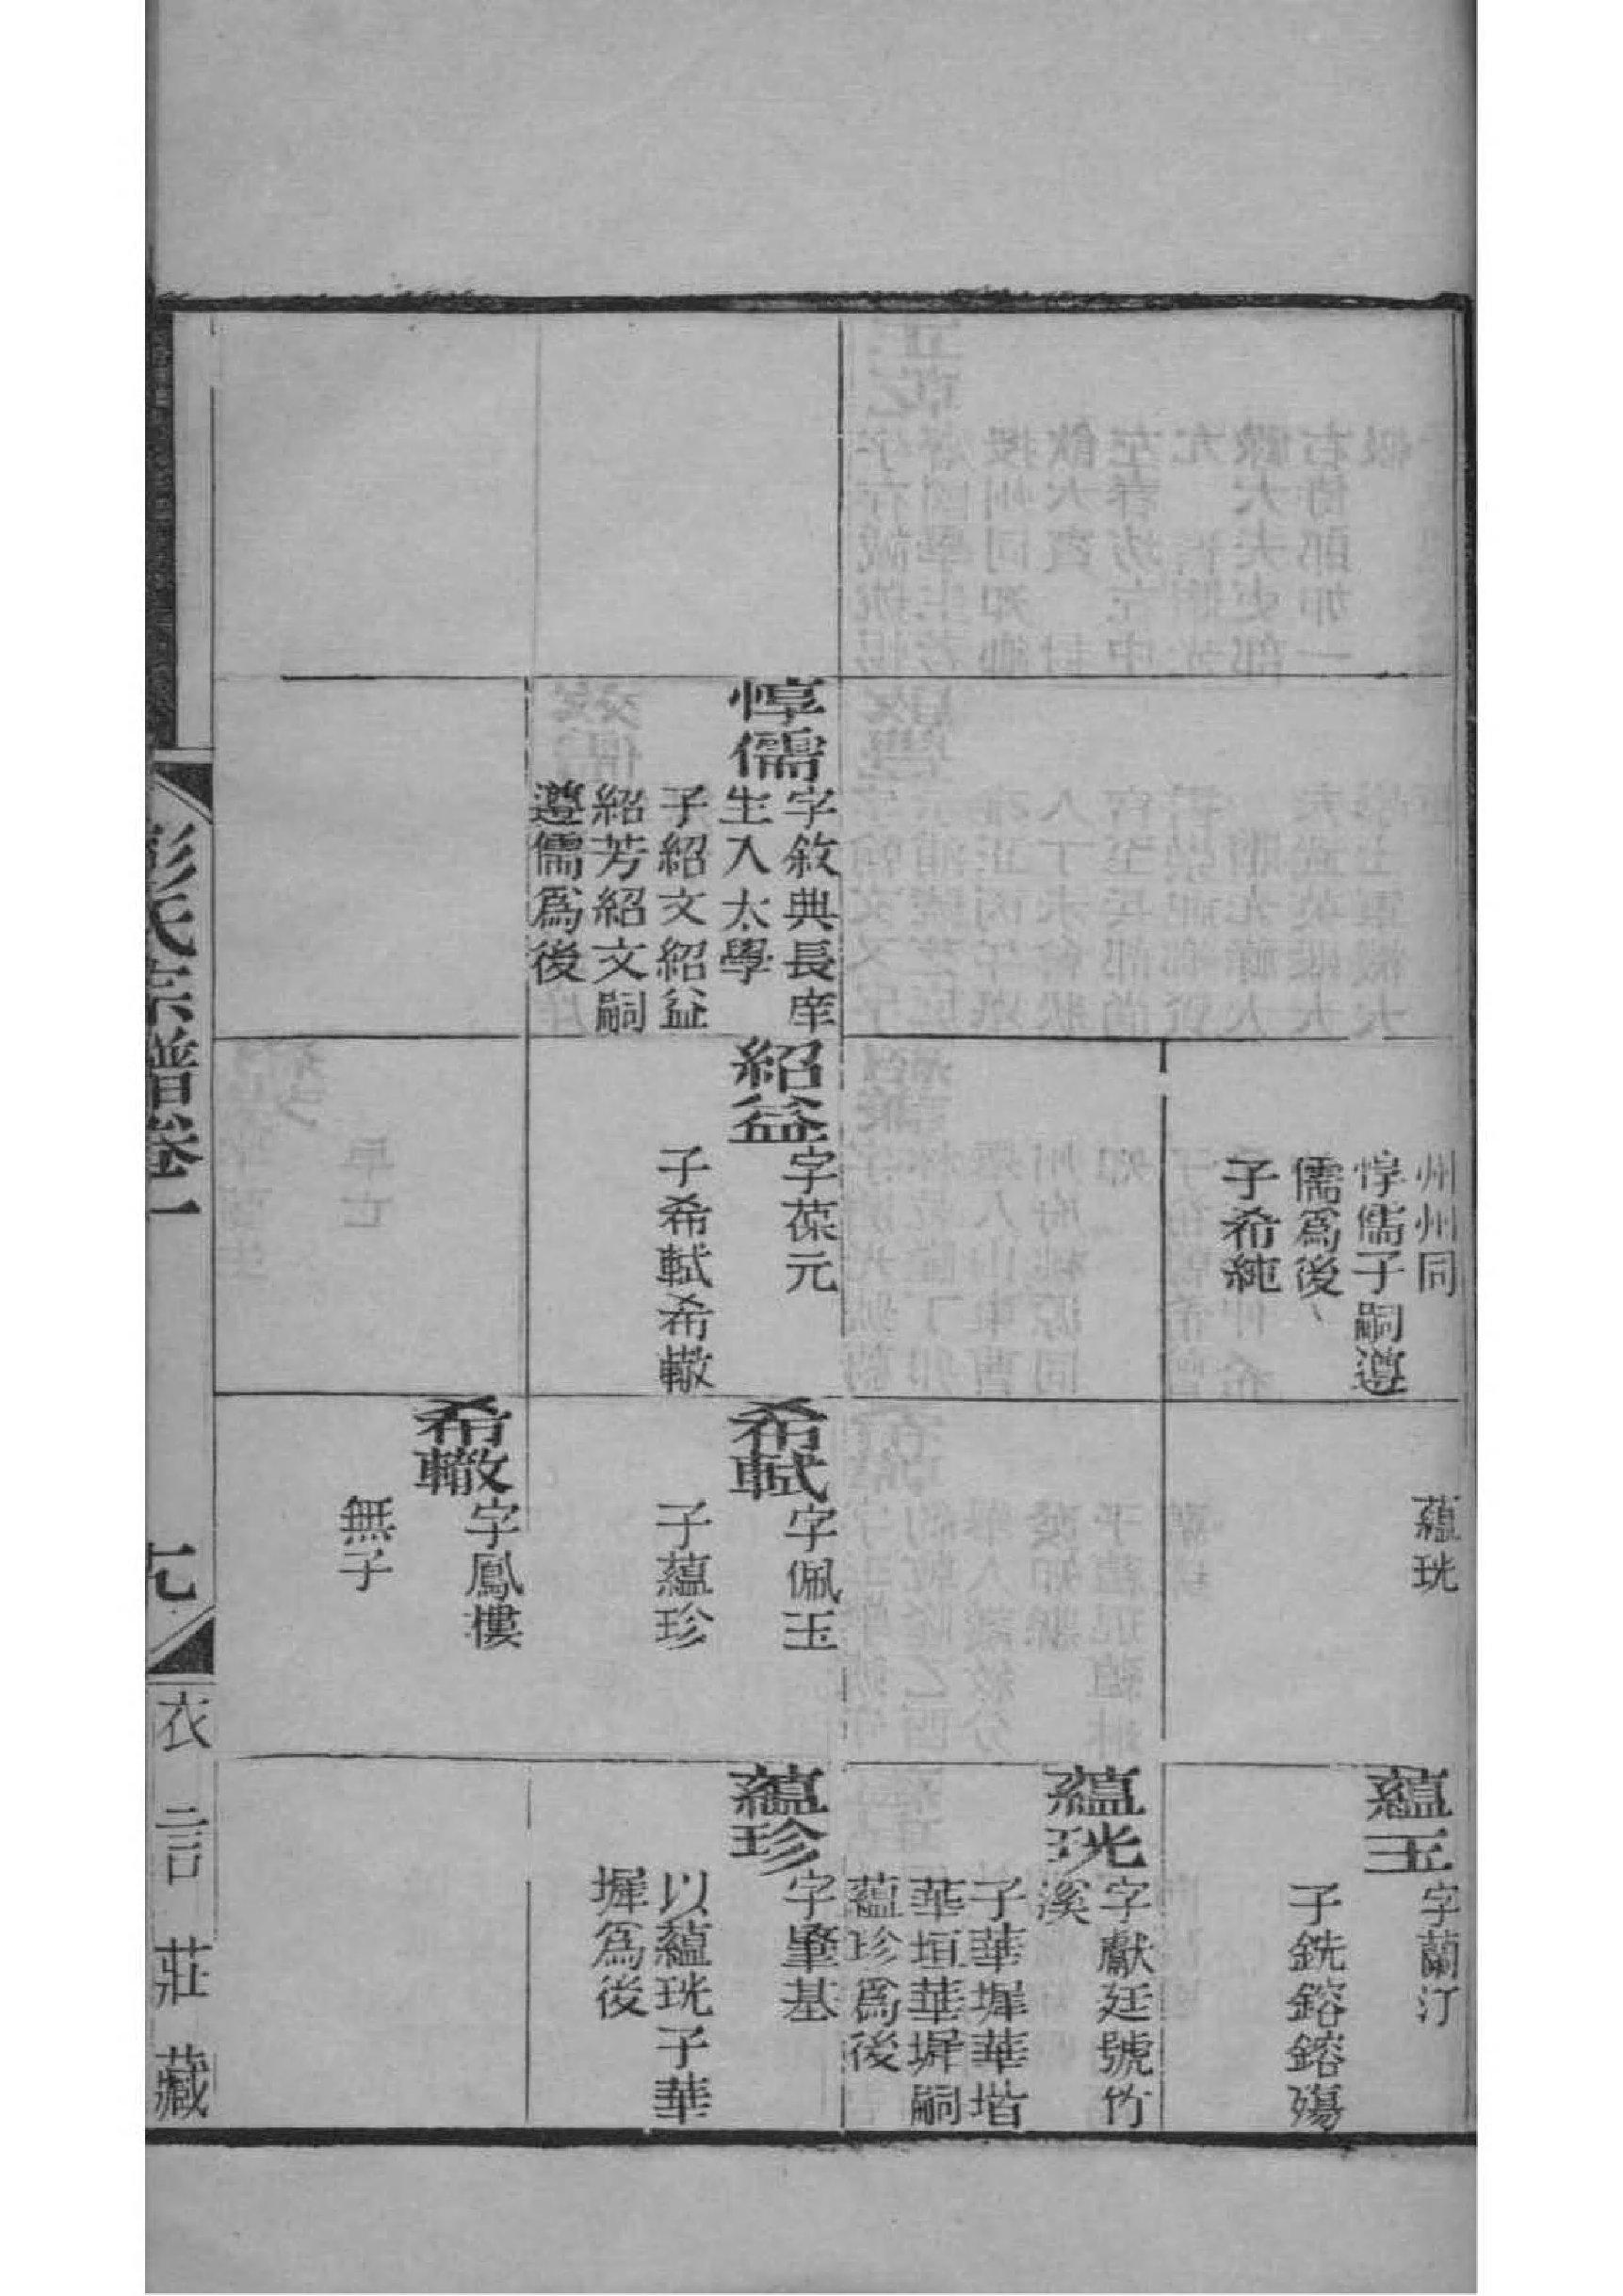 惇儒
字敘典長庠
生入太學
子紹文紹益
紹芳紹文嗣
遵儒爲後
州州同
惇儒子嗣遵
儒爲後
子希純
紹益
字葆元
子希軾希轍
蘊珖
希軾
字佩玉
子蘊珍
希轍
字鳳樓
無子
蘊玉
字蘭汀
子銑鎔鎔殤
蘊珖
字獻廷號竹
溪
子華墀華堦
華垣華墀嗣
蘊珍爲後
蘊珍
字肇基
以蘊珖子華
墀爲後
彭氏宗譜卷一
七
衣言莊藏